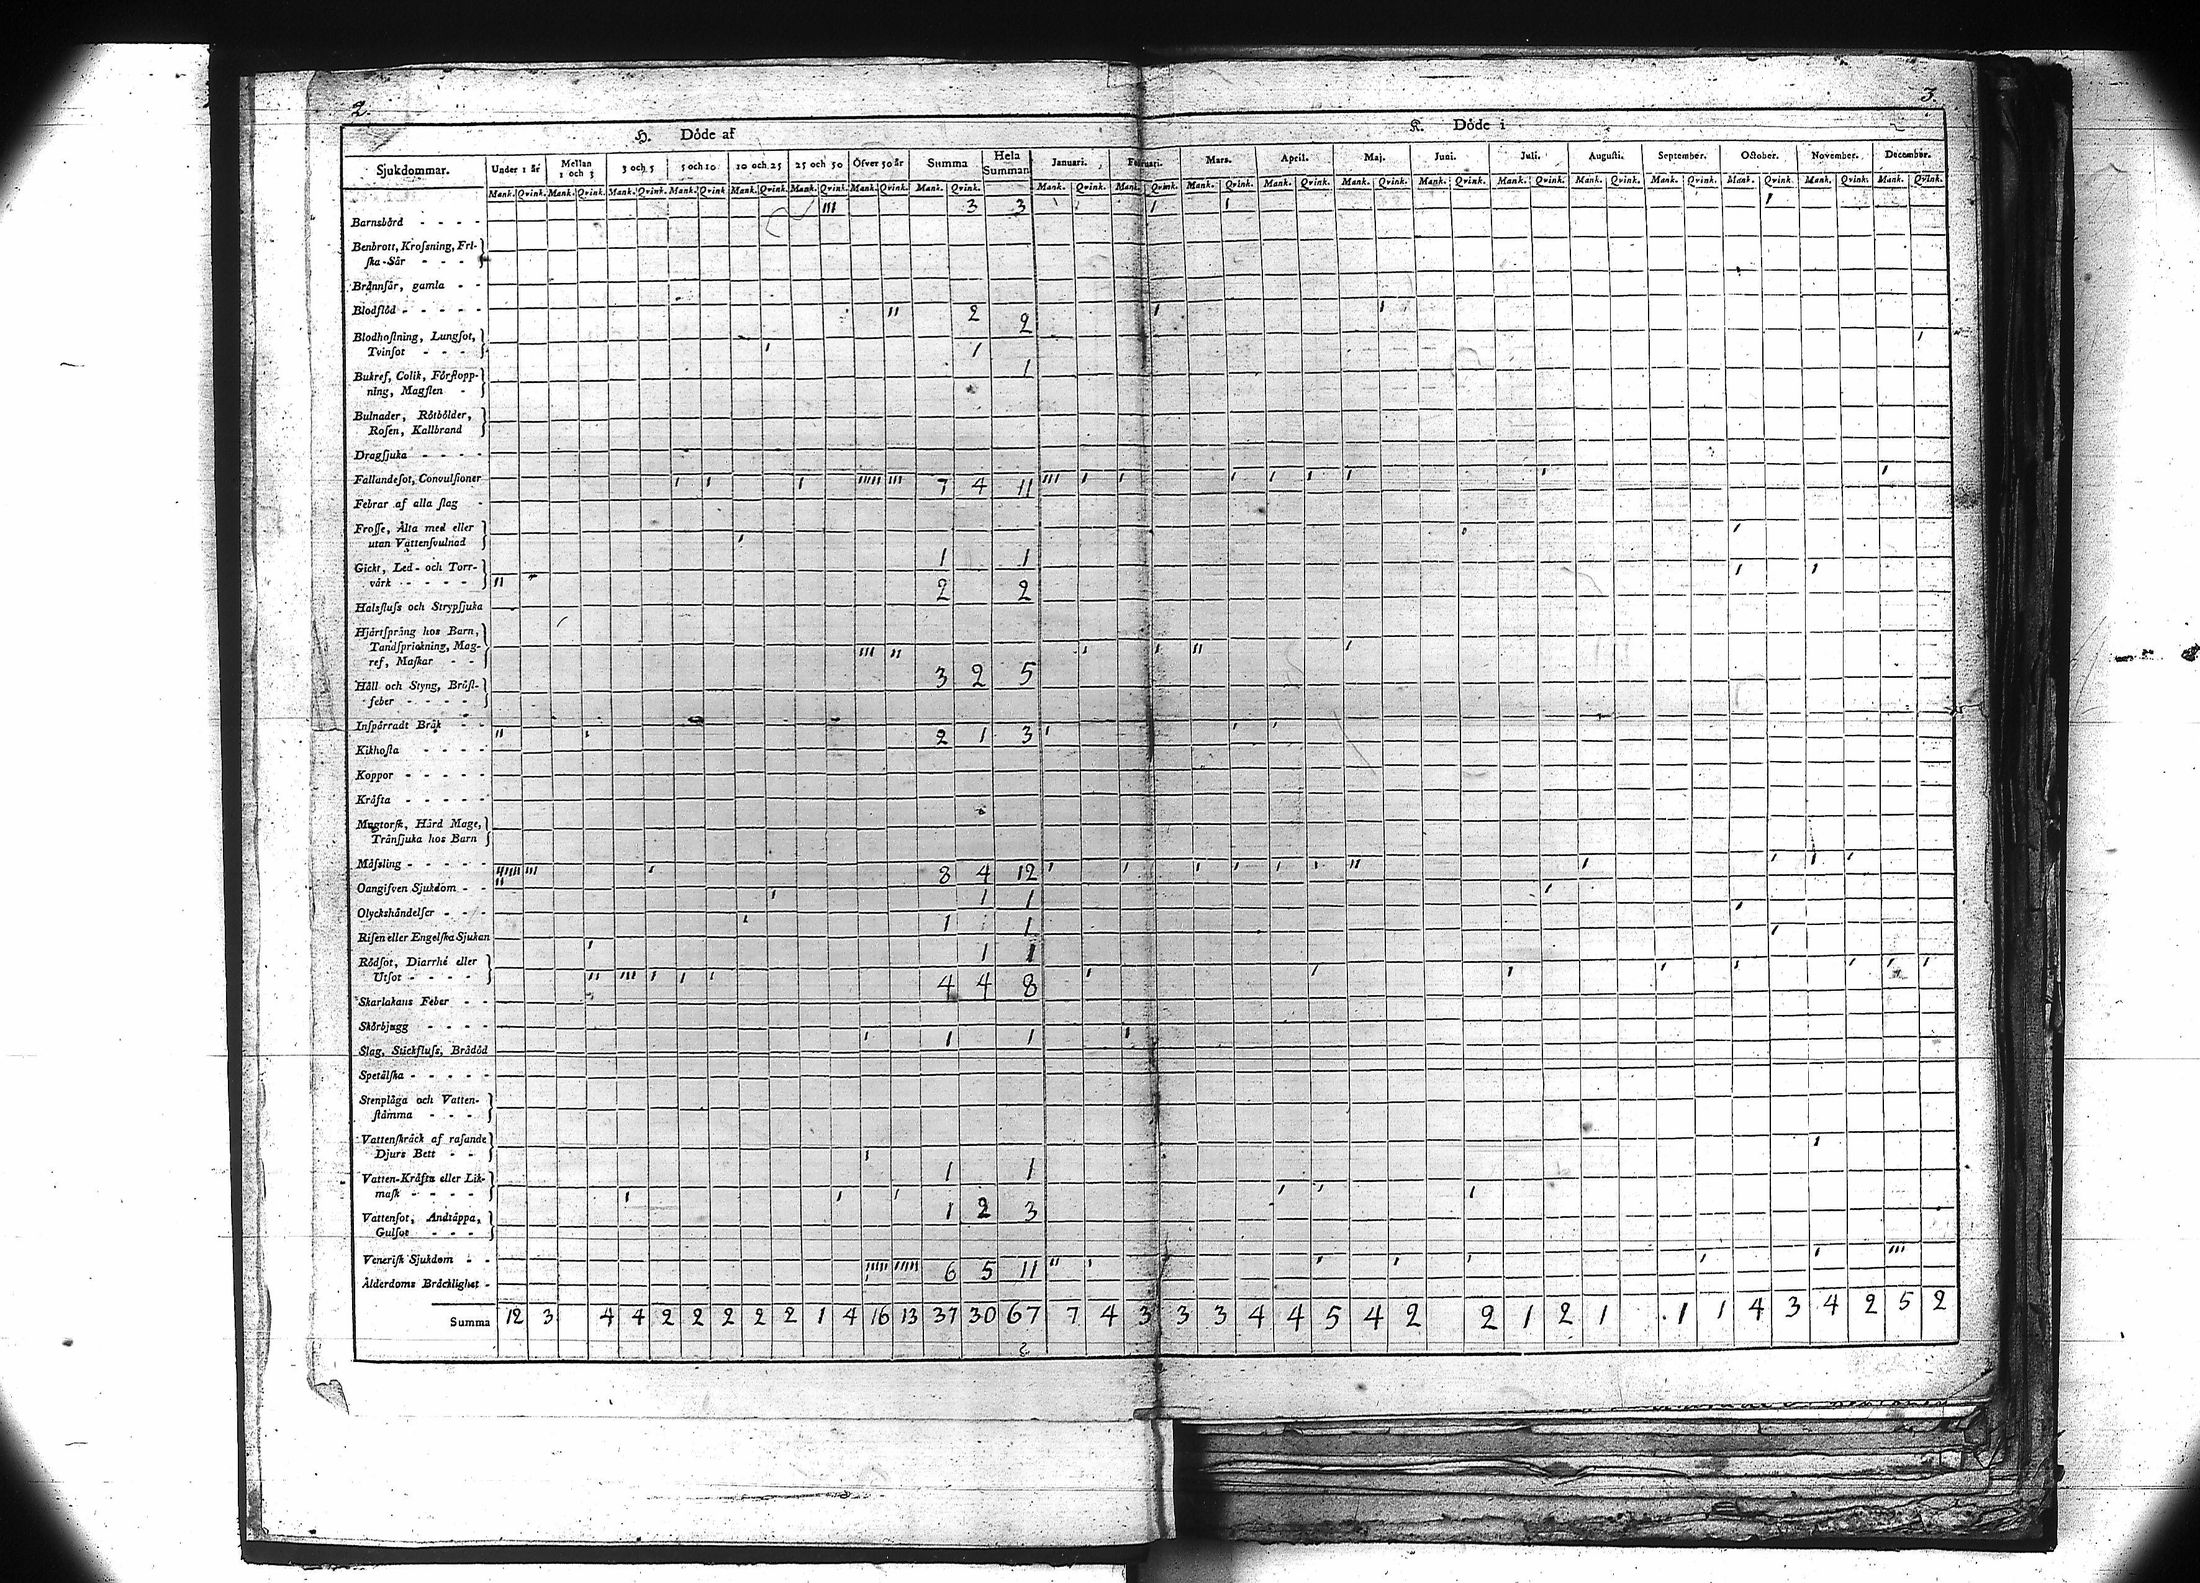 2.
3.
H. Döde af
K. Döde i
Sjukdommar. Under 1 år Mellan 1 och 3 3 och 5 5 och 10 10 och 25 25 och 50 Öfver 50 år Summa Hela Summan Januari. Februari. Mars. April. Maj. Juni. Juli. Augusti. September. October. November. December.
Mank. Qvink. Mank. Qvink. Mank. Qvink. Mank. Qvink. Mank. Qvink. Mank. Qvink. Mank. Qvink. Mank. Qvink. Mank. Qvink. Mank. Qvink. Mank. Qvink. Mank. Qvink. Mank. Qvink. Mank. Qvink. Mank. Qvink. Mank. Qvink. Mank. Qvink. Mank. Qvink. Mank. Qvink. Mank. Qvink.
Barnsbörd - - - - III 3 3 I I I
Benbrott, Krossning, Fri-
ska-Sår - - -
Brännsår, gamla - -
Blodflöd - - - - - II 2 2 I I
Blodhostning, Lungsot,
Tvinsot - - - I 1 1 I
Bukref, Colik, Förstopp-
ning, Magsten -
Bulnader, Rötbölder,
Rosen, Kallbrand
Dragsjuka - - - -
Fallandesot, Convulsioner I I I IIIII III 7 4 11 III I I I I I I I I
Febrar af alla slag -
Frosse, Älta med eller
utan Vattensvulnad I 1 1 I
Gickt, Led- och Torr-
värk - - - - II 2 2 I I
Halsfluss och Strypsjuka
Hjärtspräng hos Barn,
Tandsprickning, Mag-
ref, Maskar - - III II 3 2 5 I I II I
Håll och Styng, Bröst-
feber - - - -
Inspärradt Bråk - -
Kikhosta - - - - II I 2 1 3 I I I
Koppor - - - - -
Kräfta - - - - -
Mugtorsk, Hård Mage,
Trånsjuka hos Barn
Mässling - - - - -
Oangifven Sjukdom - - IIIIIII III I 8 4 12 I I I I I I II I I I I
Olyckshändelser - - - I 1 1 I
Risen eller Engelska Sjukan I 1 1 I
Rödsot, Diarrhé eller I 1 1 I
Utsot - - - - II III I I I 4 4 8 I I I I I I I I
Skarlakans Feber - -
Skörbjugg - - - -
Slag, Stickfluss, Brådöd I 1 1 I
Spetälska - - - - -
Stenplåga och Vatten-
stämma - - -
Vattenskräck af rasande
Djurs Bett - - I 1 1 I
Vatten-Kräfta eller Lik-
mask - - - - I I I 1 2 3 I I I
Vattensot, Andtäppa,
Gulsot - - -
Venerisk Sjukdom - -
Ålderdoms Bräcklighet - IIIIII IIIII 6 5 11 II I I I I I I III
Summa 12 3 4 4 2 2 2 2 2 1 4 16 13 37 30 67 7 4 3 3 3 4 4 5 4 2 2 1 2 1 1 1 4 3 4 2 5 2